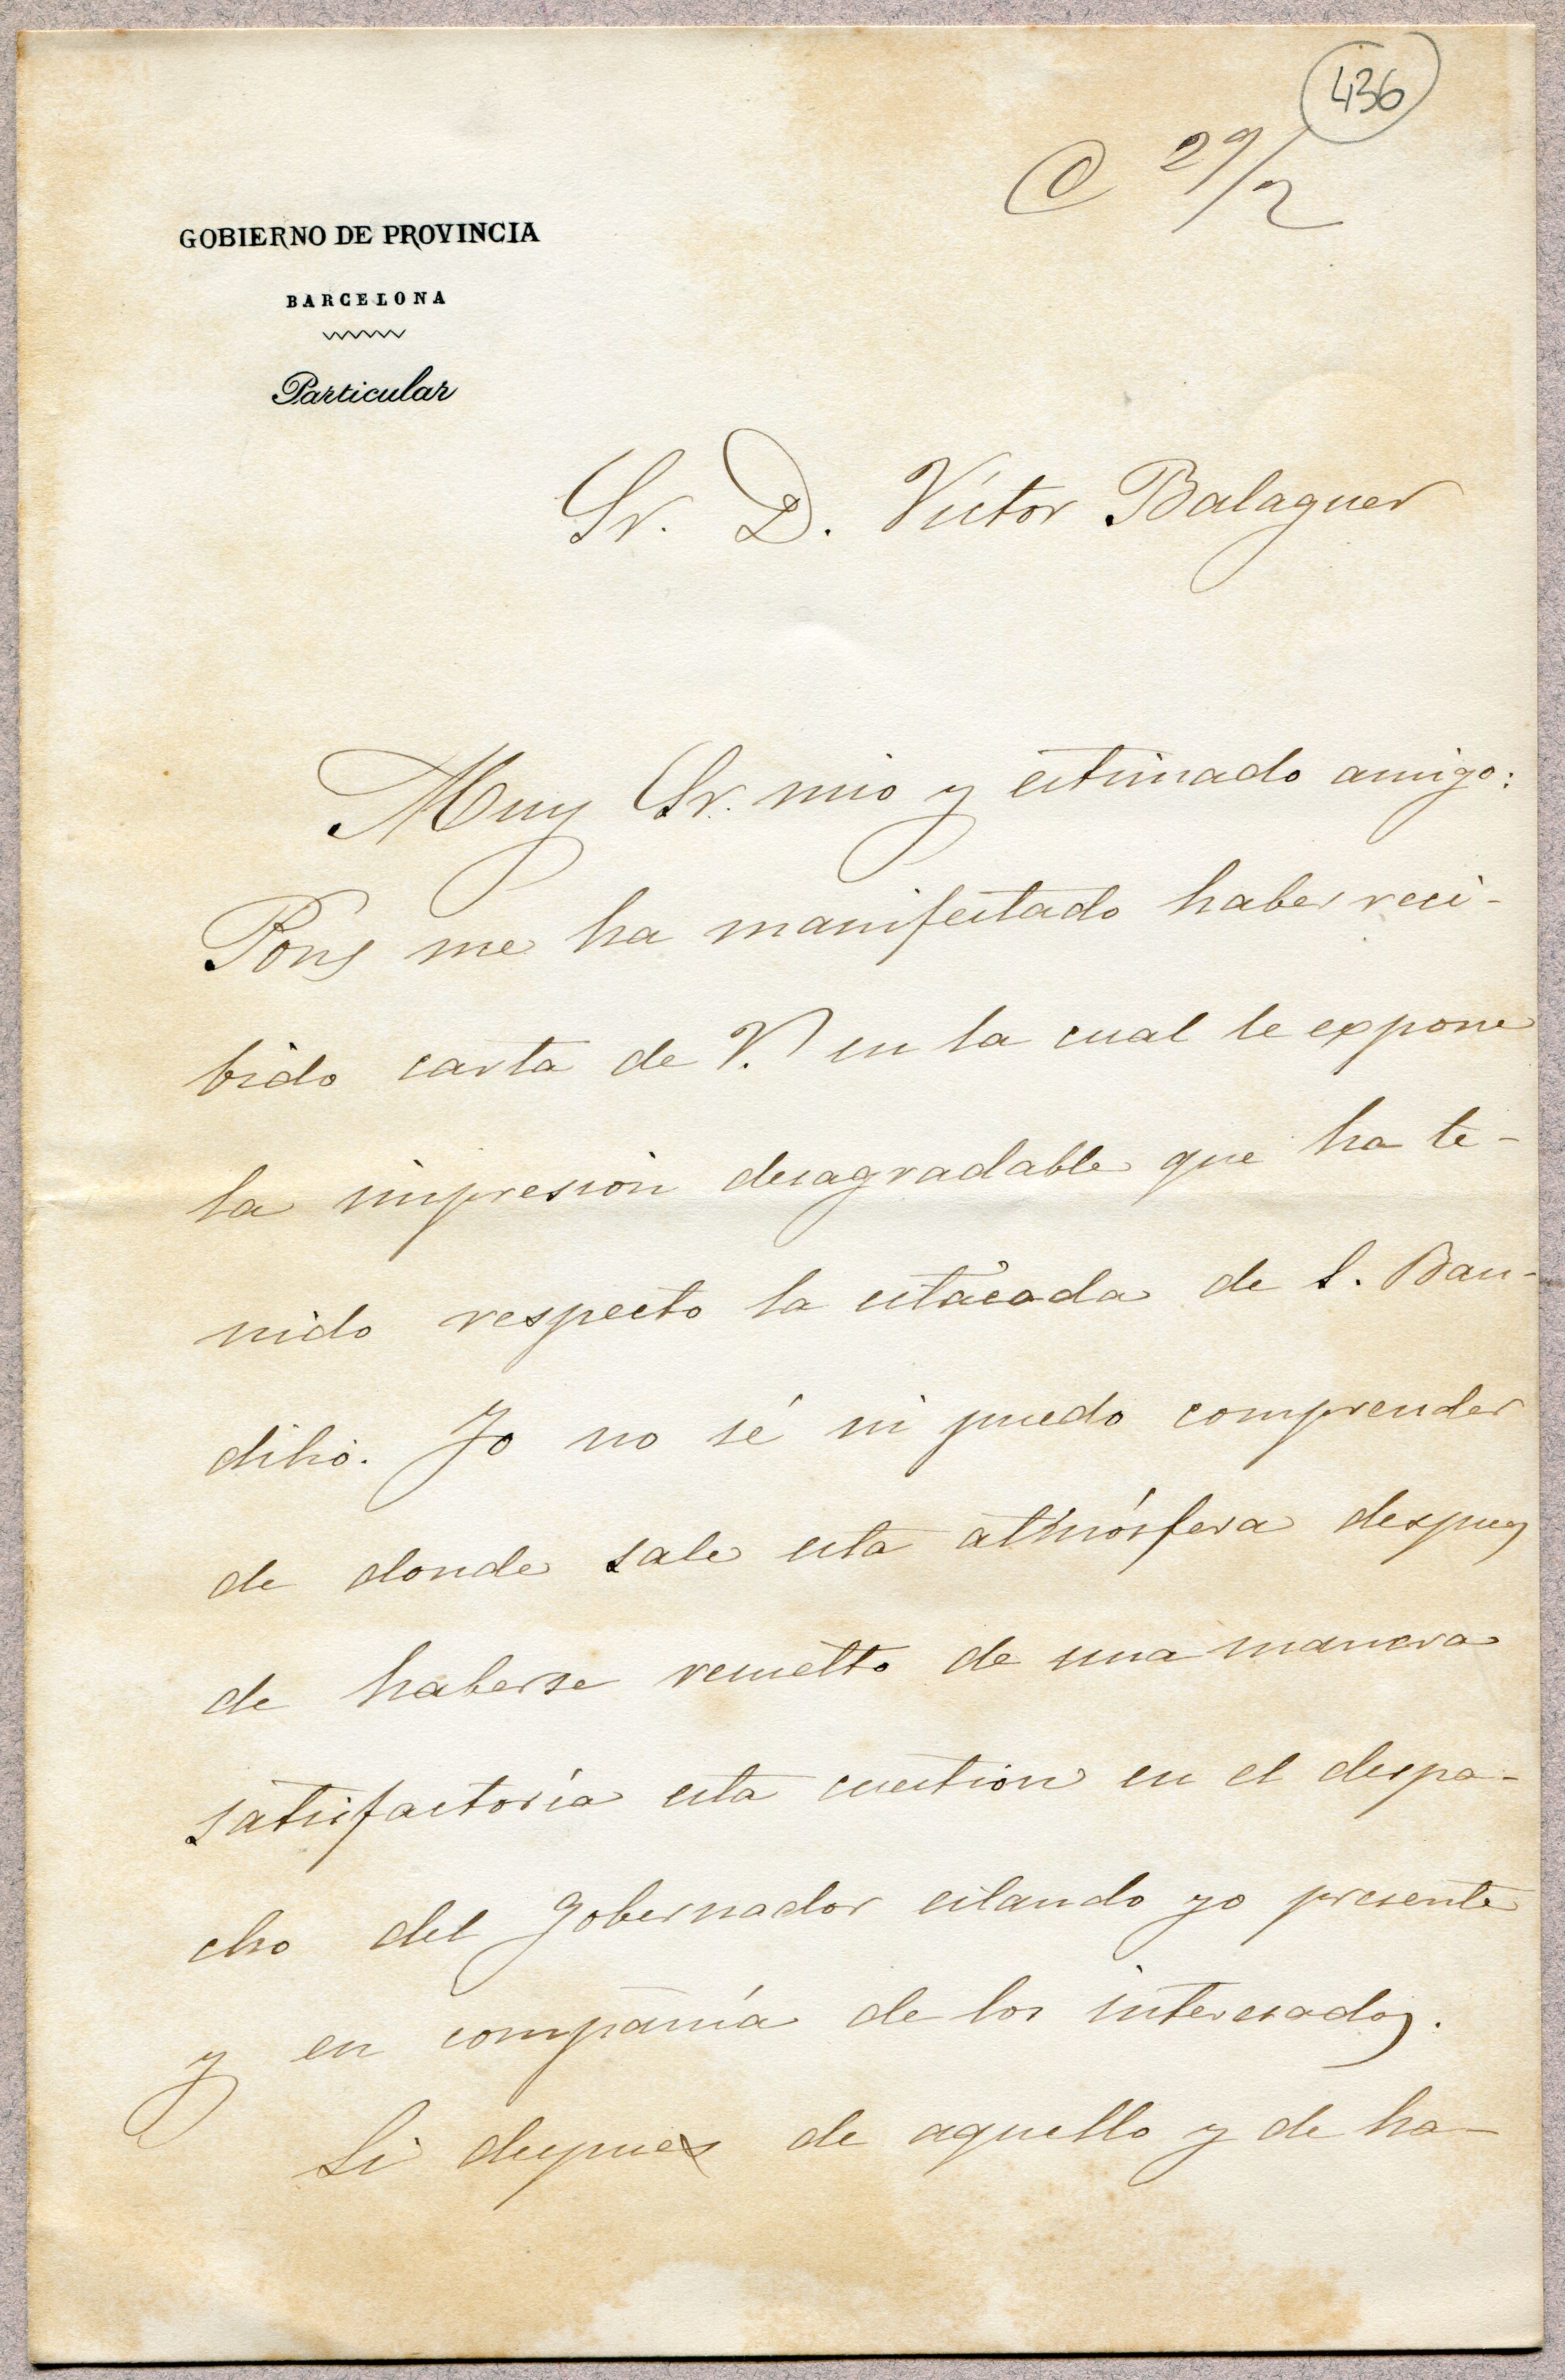 436
C 29/2
GOBIERNO DE PROVINCIA
BARCELONA
Particular
Sr. D. Víctor Balaguer
Muy Sr. mio y estimado amigo:
Pons me ha manifestado haber reci-
bido carta de V. en la cual le expone
la impresion desagradable que ha te-
nido respecto la estacada de S. Bau-
dilio. Yo no sé ni puedo comprender
de donde sale esta atmósfera despues
de haberse resuelto de una manera
satisfactoria esta cuestion en el despa-
cho del Gobernador estando yo presente
y en compañía de los interesados.
Si despues de aquello y de ha-